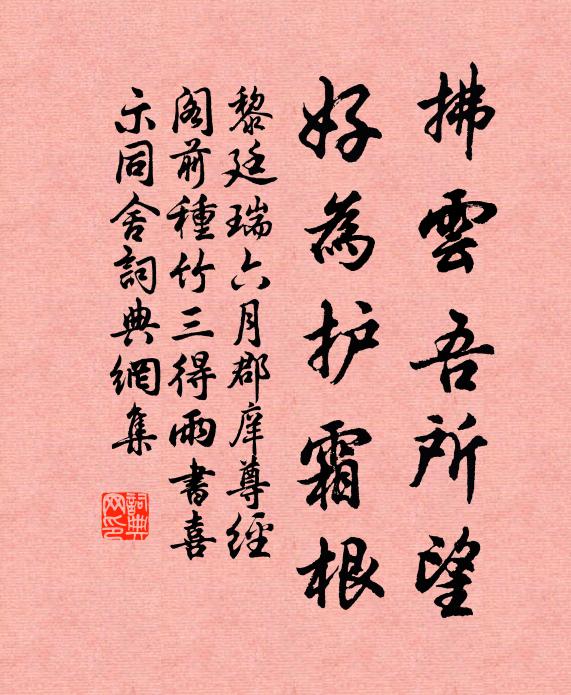 拂雲吾所望
好為护霜根
黎廷瑞六月郡庠尊經
阁前種竹三得雨書喜
示同舍詞典網集
詞典网印